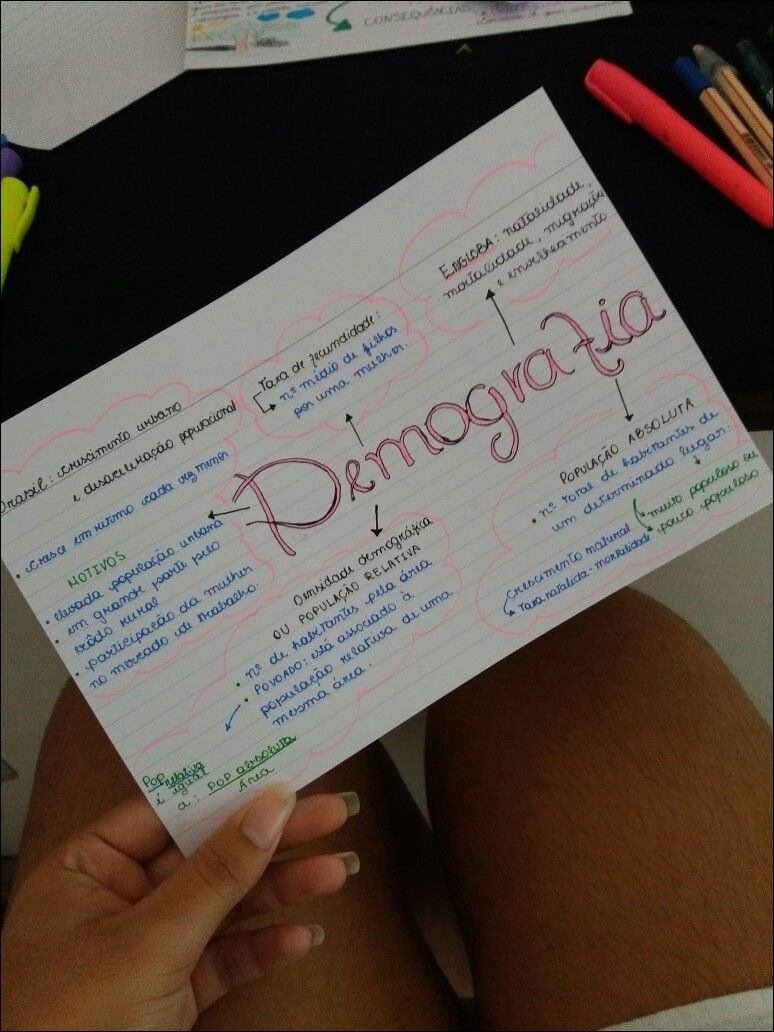 CONSEQUÊNCIAS
ENGLOBA: natalidade,
mortalidade, migração
e envelhecimento
Taxa de fecundidade:
nº médio de filhos
por uma mulher.
Demografia
Brasil: crescimento urbano
e desaceleração populacional
• cresce em ritmo cada vez menor
MOTIVOS
• elevada população urbana
• em grande parte pelo
êxodo rural
• participação da mulher
no mercado de trabalho.
Densidade demográfica
OU POPULAÇÃO RELATIVA
• nº de habitantes pela área
• POVOADO: está associado à
população relativa de uma
mesma área.
POP relativa
é igual
a: POP absoluta
Área
POPULAÇÃO ABSOLUTA
• nº total de habitantes de
um determinado lugar.
muito populoso ou
pouco populoso
crescimento natural
Taxa natalida - mortalidade